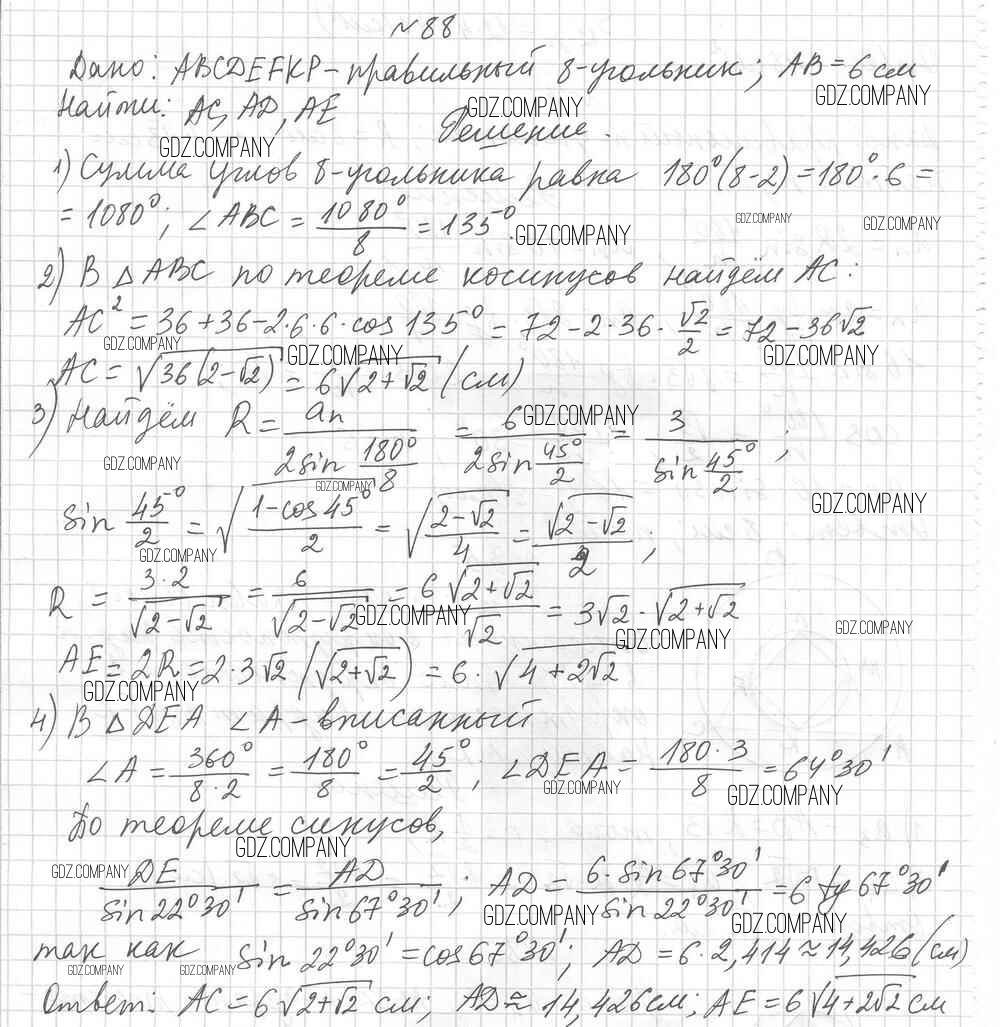 №88
Дано: ABCDEFKP – правильный 8-угольник; AB = 6 см
GDZ.COMPANY
Найти: AC, AD, AE
GDZ.COMPANY
Решение.
GDZ.COMPANY
1) Сумма углов 8-угольника равна 180°(8-2) = 180°·6 =
= 1080°; ∠ABC = 1080°/8 = 135°.
GDZ.COMPANY GDZ.COMPANY GDZ.COMPANY
2) В △ABC по теореме косинусов найдём AC:
AC² = 36 + 36 - 2·6·6·cos 135° = 72 - 2·36·√2/2 = 72 - 36√2
GDZ.COMPANY GDZ.COMPANY GDZ.COMPANY
AC = √(36(2-√2)) = 6√(2+√2) (см)
3) Найдём R = an/(2sin 180°/8) = 6/(2sin 45°/2) = 3/(sin 45°/2);
GDZ.COMPANY
GDZ.COMPANY
GDZ.COMPANY
sin 45°/2 = √((1-cos 45°)/2) = √((2-√2)/4) = √(2-√2)/2;
GDZ.COMPANY
GDZ.COMPANY
R = 3·2/√(2-√2) = 6/√(2-√2) = 6√(2+√2)/√2 = 3√2·√(2+√2)
GDZ.COMPANY GDZ.COMPANY GDZ.COMPANY
AE = 2R = 2·3√2 (√(2+√2)) = 6·√(4+2√2)
GDZ.COMPANY
4) В △DEA ∠A – вписанный
∠A = 360°/(8·2) = 180°/8 = 45°/2; ∠DEA = 180·3/8 = 64°30'
GDZ.COMPANY GDZ.COMPANY
По теореме синусов,
GDZ.COMPANY
GDZ.COMPANY
DE/sin 22°30' = AD/sin 67°30'; AD = 6·sin 67°30'/sin 22°30' = 6 tg 67°30'
GDZ.COMPANY GDZ.COMPANY
так как sin 22°30' = cos 67°30'; AD = 6·2,414 ≈ 14,426 (см)
GDZ.COMPANY GDZ.COMPANY
Ответ: AC = 6√(2+√2) см; AD ≈ 14,426 см; AE = 6√(4+2√2) см